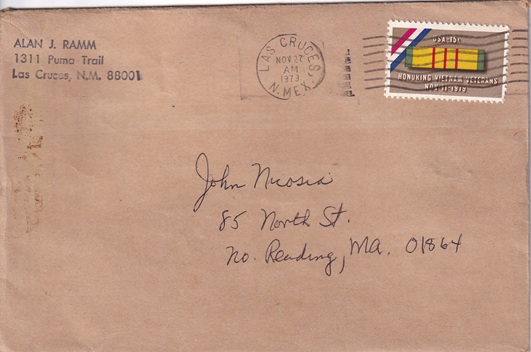 ALAN J. RAMM
1311 Puma Trail
Las Cruces, N.M. 88001
LAS CRUCES,
NOV 27
AM
1979
N. MEX.
USA 15c
HONORING VIETNAM VETERANS
NOV 11 1979
John Nicosia
85 North St.
No. Reading, MA. 01864